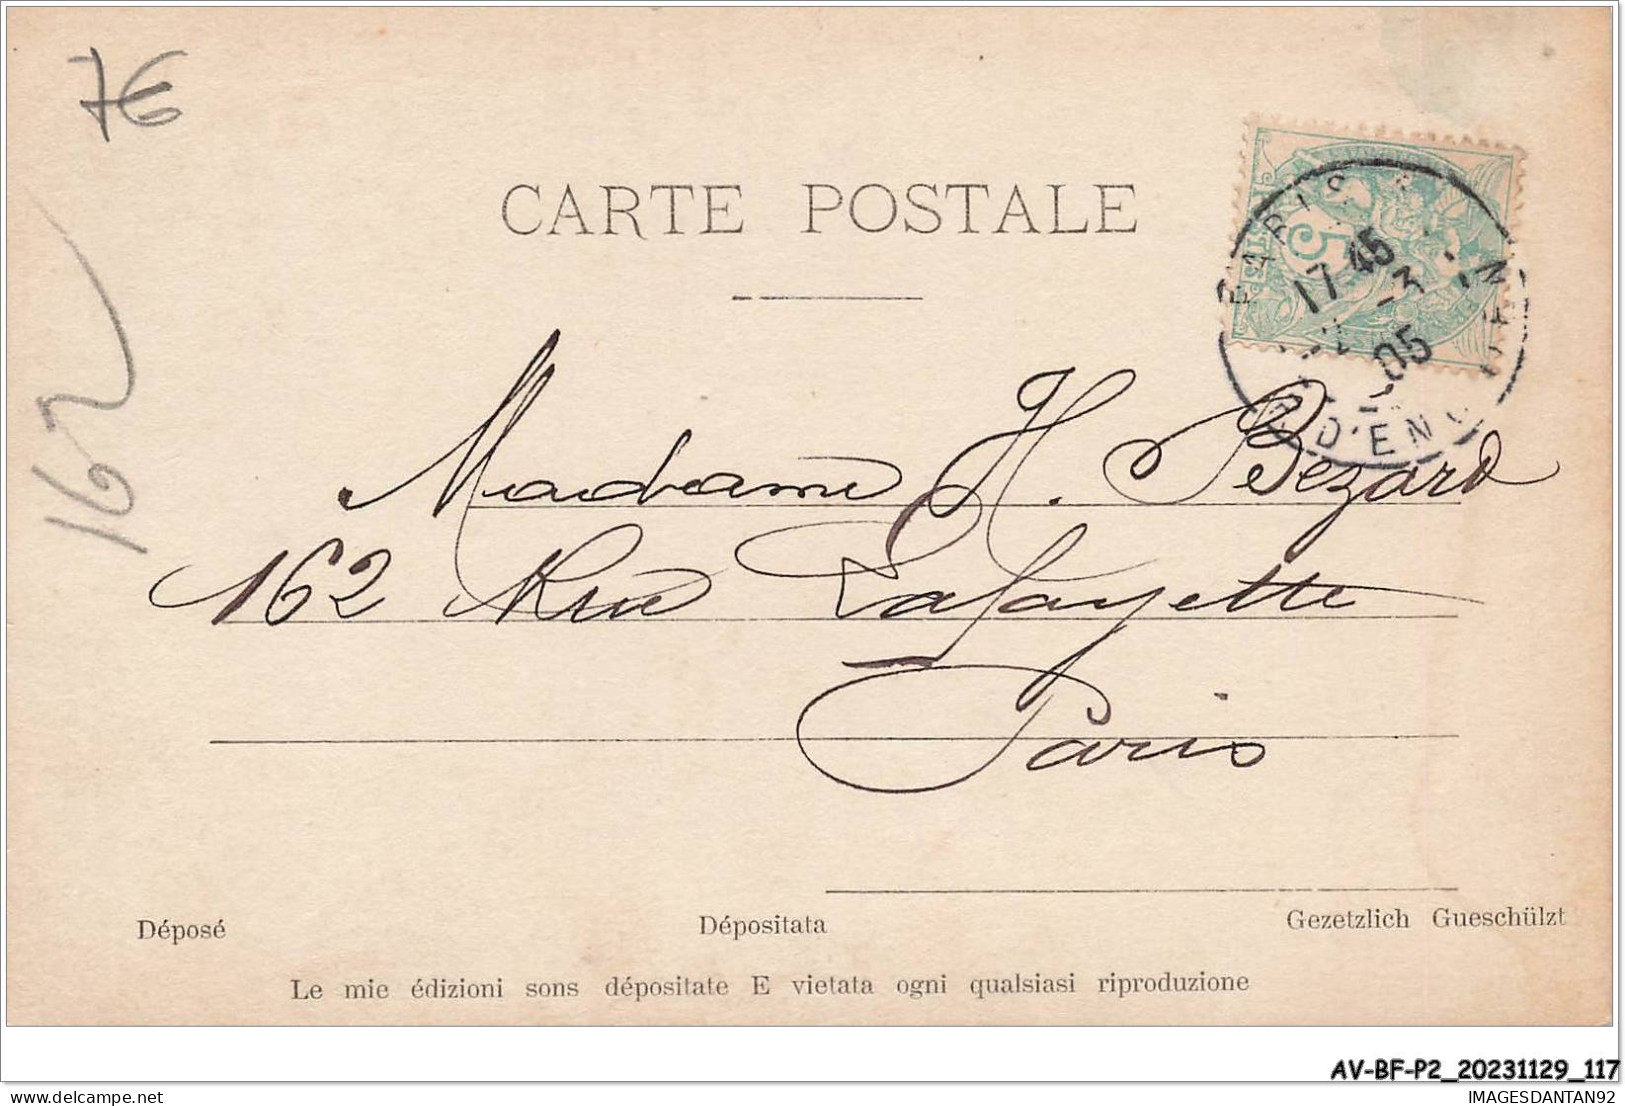 7€
162
CARTE POSTALE
5
PARIS
17 45
-3
05
D'EN
Madame H. Bezard
162 Rue Lafayette
Paris
Déposé Dépositata Gezetzlich Gueschülzt
Le mie édizioni sons dépositate E vietata ogni qualsiasi riproduzione
AV-BF-P2_20231129_117
delcampe.net
IMAGESDANTAN92